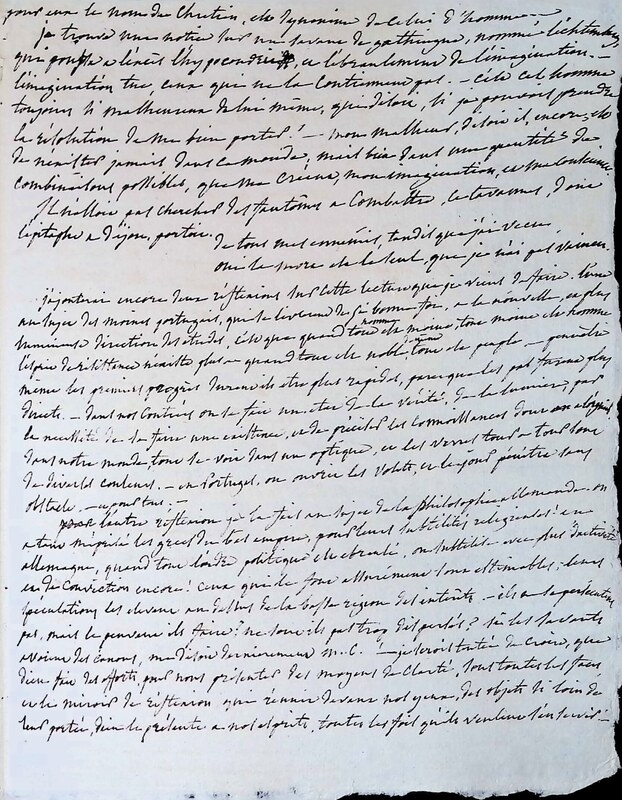 pour eux le nom de Chretien, est synonime de celui d'homme —
je trouve une notice sur un savant de gottingue, nommé lichtenberg
qui poussa a l'excès l'hypocondrie, et l'ebranlement de l'imagination. —
l'imagination tue, ceux qui ne la Contiennent pas. — Cetoit cet homme
toujours si malheureux de lui même, que disoit, si je pouvois prendre
la résolution de me bien porter! — mon malheur, disoit il, encore, est
de n'exister jamais dans ce monde, mais bien dans une quantité de
Combinaisons possibles, que se créent, mon imagination, et ma conscience
Il n'alloit pas chercher des fantômes a Combattre, ce
l'epitaphe a dijon, portoit.
de tous mes ennemis, tandis que j'ai vecu
oui la mort est le seul, que je n'ai pas vaincu.
j'ajouterai encore deux réflexions sur cette lecture que je viens de faire. l'une
au sujet des moines portugais, qui se livrent de si bonne foi, a la nouvelle, et plus
lumineuse direction des études, c'est que quand tout est moine, tout moine est homme
l'espece de résistance n'existe plus — quand tout est noble tout est peuple — peut être
même les premiers progrès doivent ils etre plus rapides, parce que les pas seront plus
directs. — dans nos Contrées on se fait un etat de la vérité, de la lumiere, par
la necessité de se faire une existence, et de preter les connoissances
dans notre monde, tout se voit dans un optique, et les verres tous a tous sont
de diverses couleurs. — en Portugal, on ouvre les volets, et le jour pénètre sans
obstacle. —
l'autre réflexion je la fais au sujet de la philosophie allemande. on
a tant méprisé les grecs du bas empire, pour leurs subtilités religieuses! en
allemagne, quand tout l'ordre politique est ebranlé, on subtilise avec plus d'activité
et de Conviction encore! Ceux qui le font assurément sont estimables, leurs
speculations les elevent au dessus de la basse région des intérêts. — ils ne se persécutent
pas, mais le peuvent ils faire? ne sont ils pas trop dispersés? si les savants
avoient des canons, me disoit dernierement m. C. — je serois tentée de croire, que
dieu fait des efforts, pour nous présenter des moyens de Clarté, sous toutes les faces
et le miroir de réflexion que réunit devant nos yeux, des objets si loin de
leur portée, dieu le présente a nos esprits, toutes les fois qu'ils veulent s'en servir —